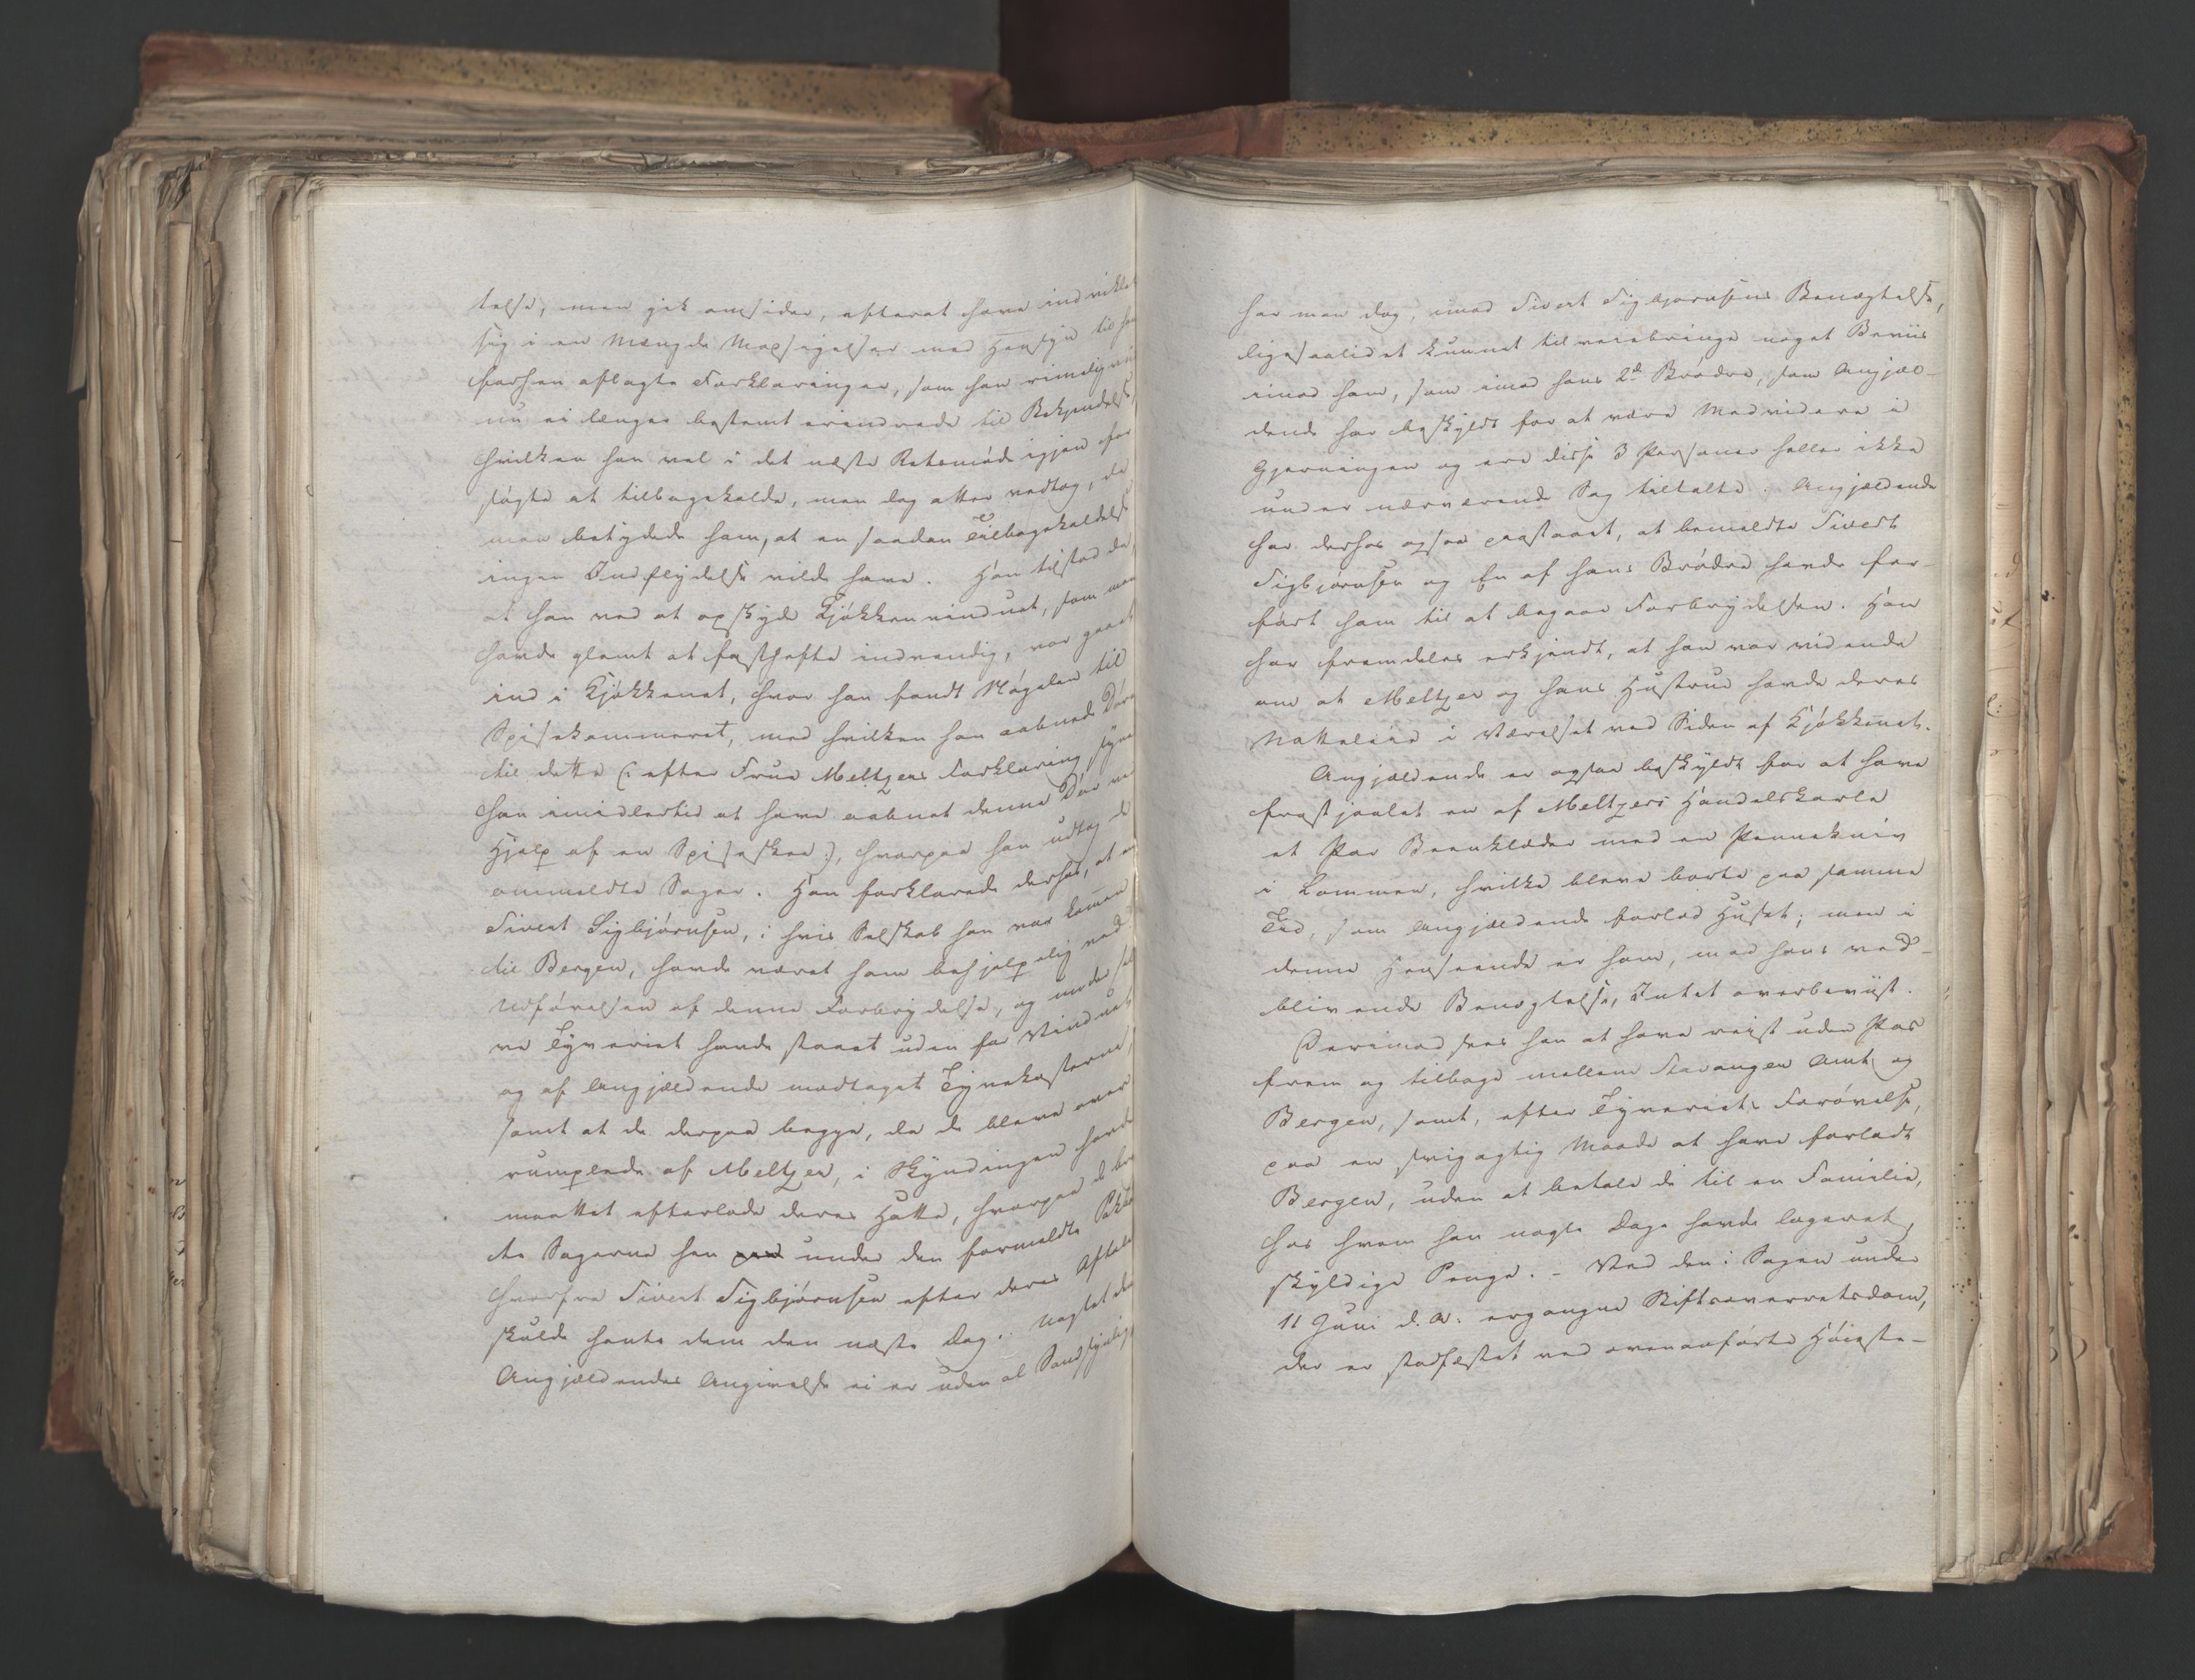 telse, men gik omsider, efterat have indviklet
sig i en Mængde Modsigelser med Hensyn til hans
forhen aflagte Forklaringer, som han rimeligviis
nu ei længer bestemt erindrede til Bekjendelse,
hvilken han vel i det næste Retsmøde igjen for
søgte at tilbagekalde, men dog atter vedtog, da
man betydede ham, at en saadan Tilbagekaldelse
ingen Indflydelse vilde have. Han tilstod da,
at han ved at opskyde Kjøkkenvinduet, som man
havde glemt at fasthefte indvendig, var gaaet
ind i Kjøkkenet, hvor han fandt Nøgelen til
Spisekammeret, med hvilken han aabnede Døren
til dette (: efter Frue Meltzers Forklaring synes
han imidlertid at have aabnet denne Dør ved
Hjelp af en Spiseskee :), hvorpaa han udtog de
ommeldte Sager. Han forklarede derhos, at en
Sivert Sigbjørnsen, i hvis Selskab han var kommen
til Bergen, havde været ham behjelpelig ved
Udførelsen af denne Forbrydelse, og under sel
ve Tyveriet havde staaet uden for Vinduet
og af Angjældende modtaget Tyvekosterne,
samt at de derpaa begge, da de bleve over
rumplede af Meltzer, i Skyndingen havde
maattet efterlade deres Hatte, hvorpaa de bra
te Sagerne hen under den formeldte
hvorfra Sivert Sigbjørnsen efter deres Aftale
skulde hente dem den næste Dag. Uagtet den
Angjældendes Angivelse ei er uden al Sandsynlig
har man dog, imod Sivert Sigbjørnsens Benægtelse,
ligesaalidet kunnet tilveiebringe noget Beviis
imod ham, som imod hans 2de Brødre, som Angjæl-
dende har beskyldt for at være Medvidere i
Gjerningen og ere disse 3 Personer heller ikke
under nærværende Sag tiltalte. Angjældende
har derhos ogsaa paastaaet, at bemeldte Sivert
Sigbjørnsen og En af hans Brødre havde for-
ført ham til at begaae Forbrydelsen. Han
har fremdeles erkjendt, at han var vidende
om at Meltzer og hans Hustrue havde deres
Natteleie i Værelset ved Siden af Kjøkkenet.
Angjældende er ogsaa beskyldt for at have
frastjaalet en af Meltzers Handelskarle
et Par Beenklæder med en Pennekniv
i Lommen, hvilke bleve borte paa samme
Tid, som Angjældende forlod Huset; men i
denne Henseende er ham, mod hans ved-
blivende Benægtelse, Intet overbeviist.
Derimod sees han at have reist uden Pas
frem og tilbage mellem Stavanger Amt og
Bergen, samt, efter Tyveriets Forøvelse,
paa en svigagtig Maade at have forladt
Bergen, uden at betale de til en Familie,
hos hvem han nogle Dage havde logeret,
skyldige Penge. - Ved den i Sagen under
11 Juni d. A. ergangne Stiftsoverretsdom,
der er stadfæstet ved ovenanførte Høieste-